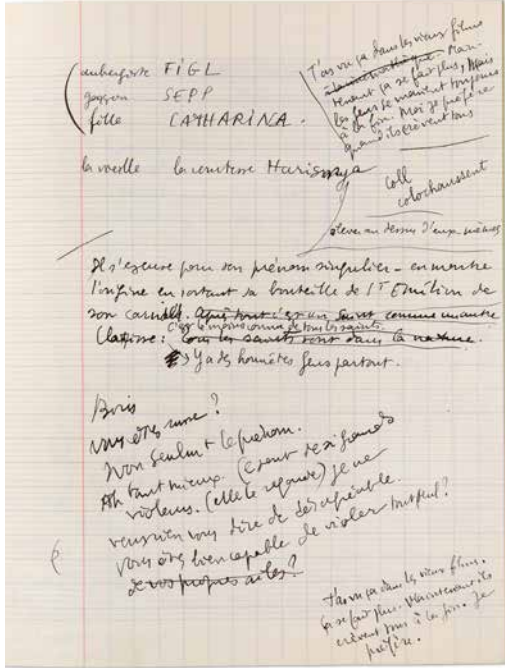 aubergiste FIGL
garçon SEPP
fille CATHARINA.
la vieille la comtesse
T'as vu ça dans les vieux films
à la cinémathèque. Main-
tenant ça se fait plus, Mais
les gens se marient toujours
à la fin. Moi je préfère
quand ils crèvent tous
coll
colochaussent
élever au dessus d'eux-mêmes
Il s'excuse pour son prénom singulier - en montre
l'origine en sortant sa bouteille de St Emilion de
son . Après tout c'est un Saint comme un autre
c'est le moins connu de tous les saints.
: Tous les saints sont dans la nature.
Y a des honnêtes gens partout.
Boris
vous êtes russe ?
Non Seulmt le prénom.
Ah tant mieux. (Ce sont de si grands
violeurs. (elle le regarde) je ne
veux rien vous dire de désagréable.
vous êtes bien capable de violer tout seul ?
de vos propres ailes ?
t'as vu ça dans les vieux films.
ça se fait plus. Maintenant ils
crèvent tous à la fin. Je
préfère.